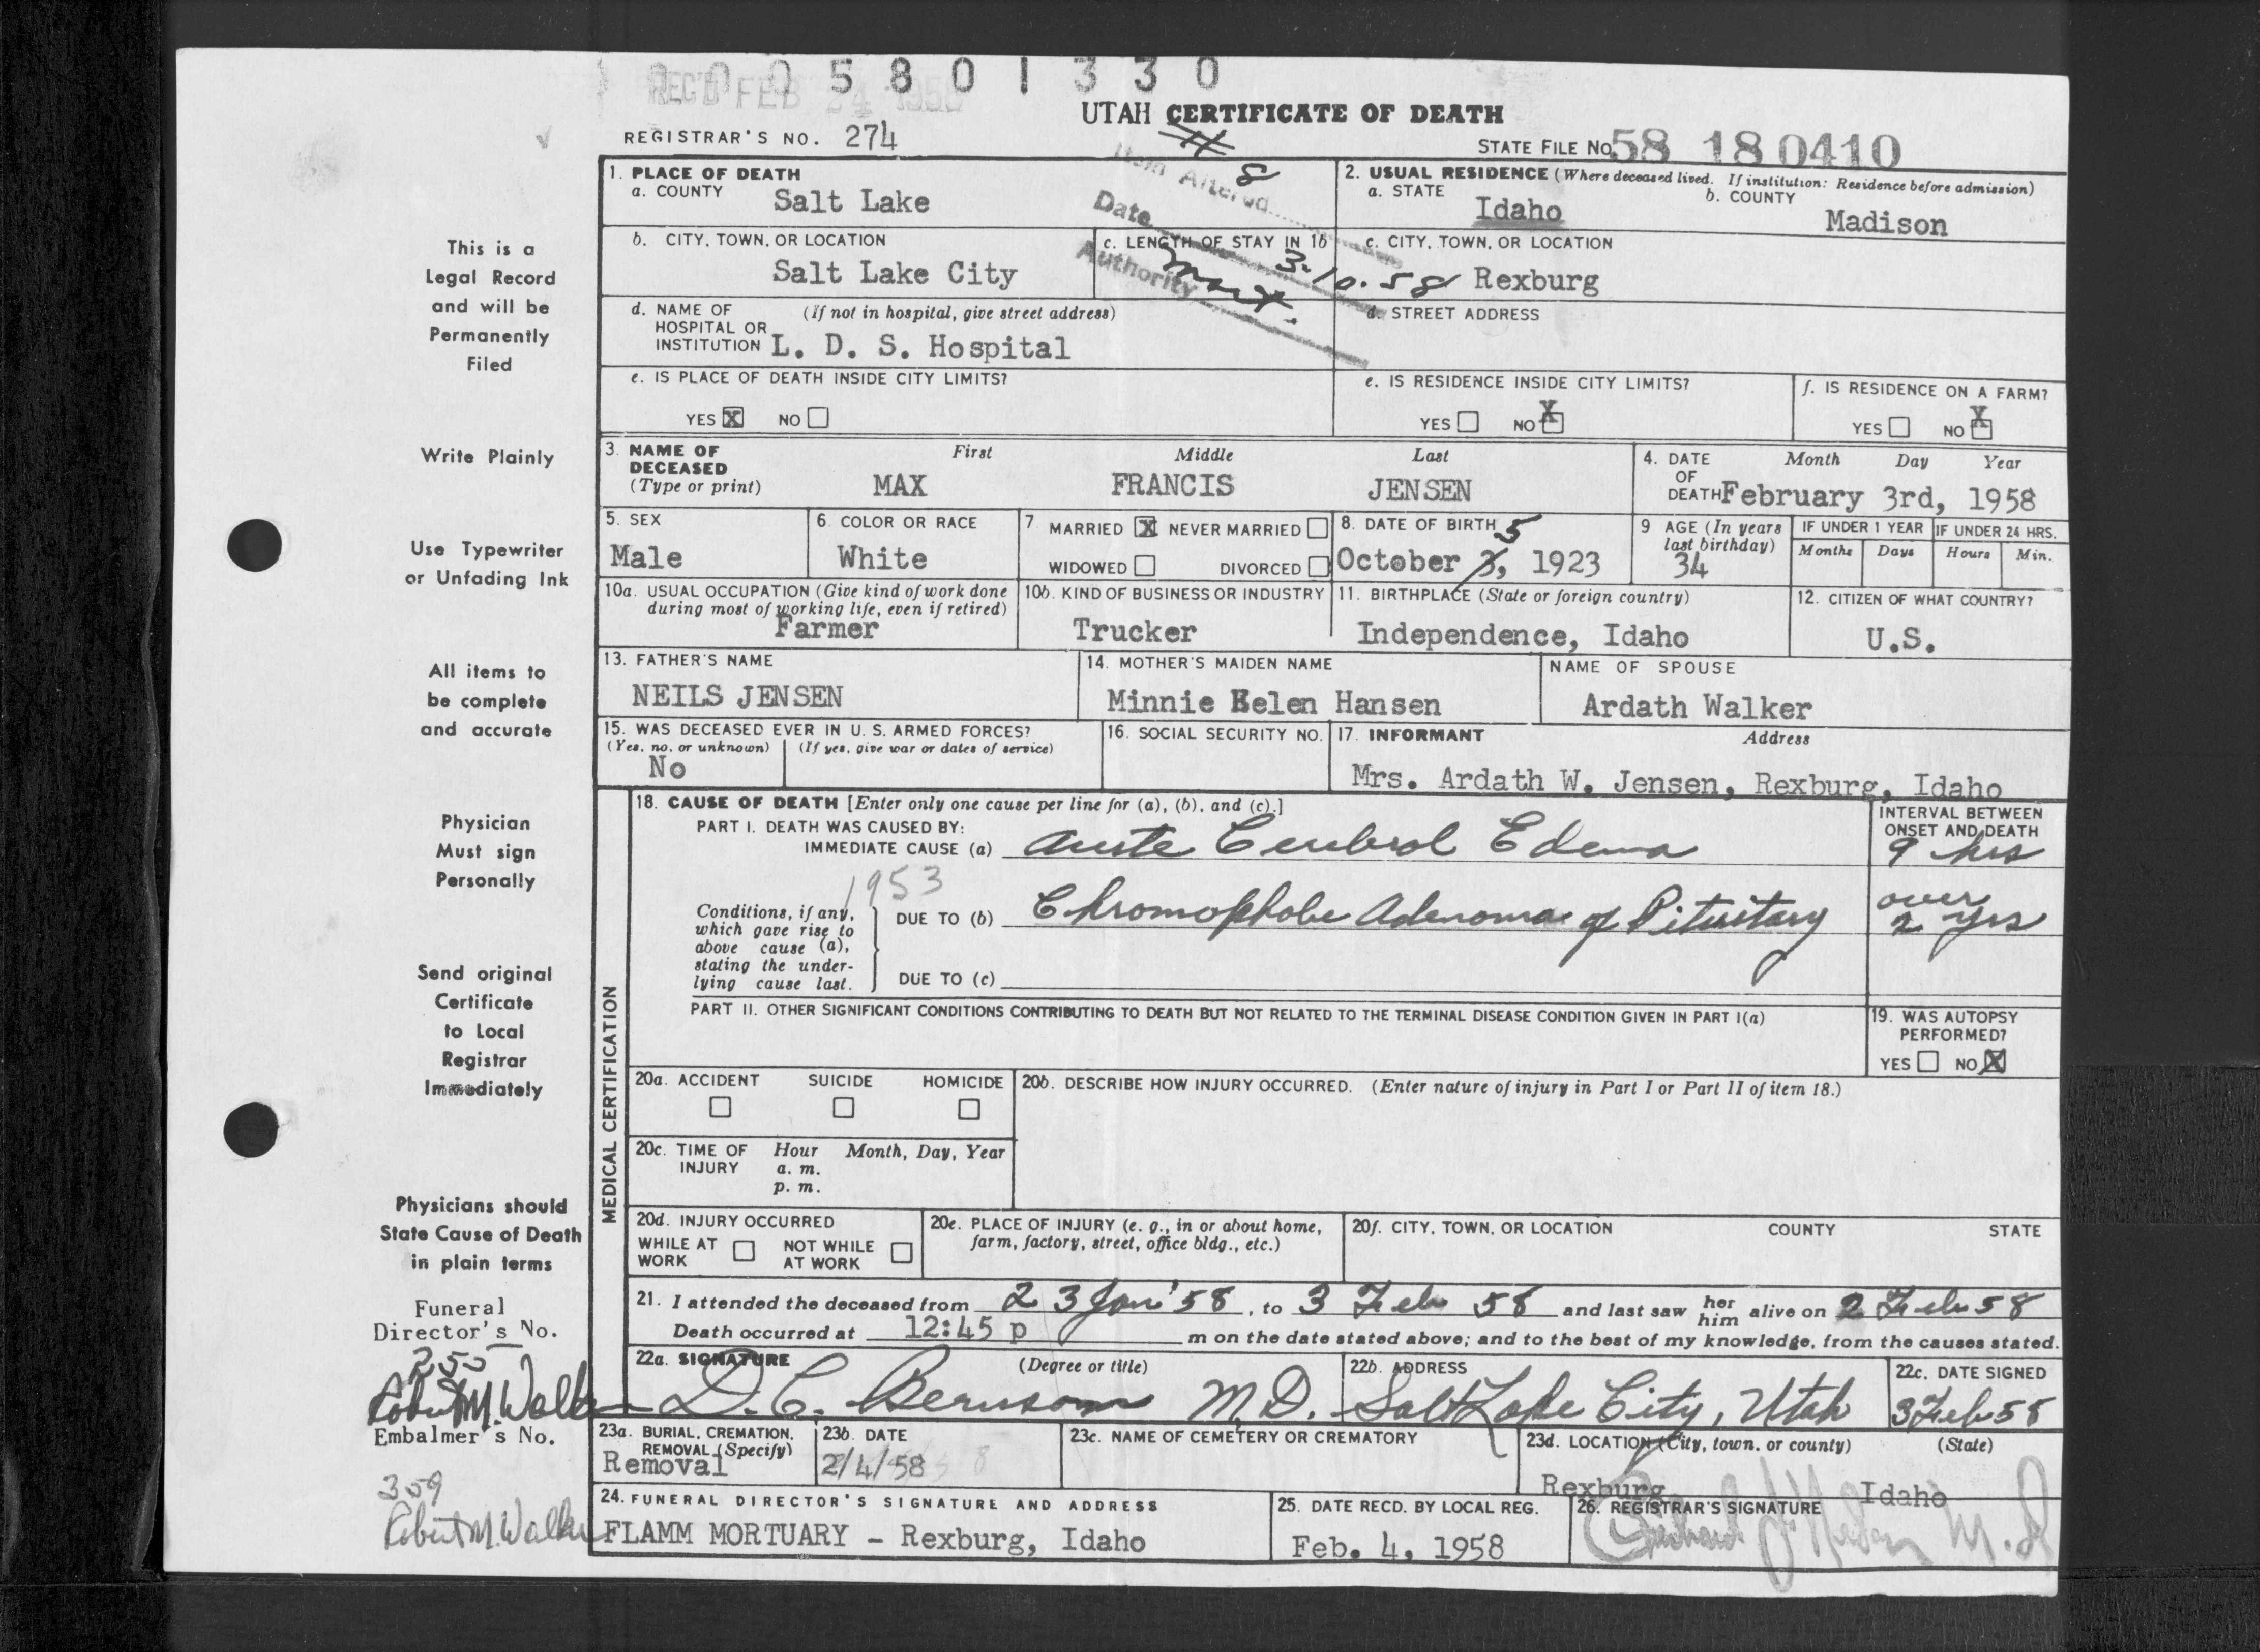 0 0 0 5 8 0 1 3 3 0
REC'D FEB 24 1958
UTAH CERTIFICATE OF DEATH
REGISTRAR'S NO. 274
STATE FILE No. 58 18 0410
Item Altered 8
Date 3-10-58
Authority
1. PLACE OF DEATH
a. COUNTY Salt Lake
2. USUAL RESIDENCE (Where deceased lived. If institution: Residence before admission)
a. STATE Idaho b. COUNTY Madison
b. CITY, TOWN, OR LOCATION Salt Lake City
c. LENGTH OF STAY IN 1b
c. CITY, TOWN, OR LOCATION Rexburg
d. NAME OF HOSPITAL OR INSTITUTION (If not in hospital, give street address) L. D. S. Hospital
d. STREET ADDRESS
e. IS PLACE OF DEATH INSIDE CITY LIMITS?
YES X NO
e. IS RESIDENCE INSIDE CITY LIMITS?
YES NO X
f. IS RESIDENCE ON A FARM?
YES NO X
3. NAME OF DECEASED (Type or print)
First Middle Last
MAX FRANCIS JENSEN
4. DATE OF DEATH Month Day Year
February 3rd, 1958
5. SEX
Male
6. COLOR OR RACE
White
7. MARRIED X NEVER MARRIED
WIDOWED DIVORCED
8. DATE OF BIRTH 5
October 3, 1923
9 AGE (In years last birthday)
34
IF UNDER 1 YEAR
Months Days
IF UNDER 24 HRS.
Hours Min.
10a. USUAL OCCUPATION (Give kind of work done during most of working life, even if retired)
Farmer
10b. KIND OF BUSINESS OR INDUSTRY
Trucker
11. BIRTHPLACE (State or foreign country)
Independence, Idaho
12. CITIZEN OF WHAT COUNTRY?
U.S.
13. FATHER'S NAME
NEILS JENSEN
14. MOTHER'S MAIDEN NAME
Minnie Helen Hansen
NAME OF SPOUSE
Ardath Walker
15. WAS DECEASED EVER IN U. S. ARMED FORCES?
(Yes, no, or unknown) (If yes, give war or dates of service)
No
16. SOCIAL SECURITY NO.
17. INFORMANT Address
Mrs. Ardath W. Jensen, Rexburg, Idaho
MEDICAL CERTIFICATION
18. CAUSE OF DEATH [Enter only one cause per line for (a), (b), and (c).]
INTERVAL BETWEEN ONSET AND DEATH
PART I. DEATH WAS CAUSED BY:
IMMEDIATE CAUSE (a) Acute Cerebral Edema 9 hrs
1953
Conditions, if any, which gave rise to above cause (a), stating the underlying cause last.
DUE TO (b) Chromophobe Adenoma of Pituitary over 2 yrs
DUE TO (c)
PART II. OTHER SIGNIFICANT CONDITIONS CONTRIBUTING TO DEATH BUT NOT RELATED TO THE TERMINAL DISEASE CONDITION GIVEN IN PART I(a)
19. WAS AUTOPSY PERFORMED?
YES NO X
20a. ACCIDENT SUICIDE HOMICIDE
20b. DESCRIBE HOW INJURY OCCURRED. (Enter nature of injury in Part I or Part II of item 18.)
20c. TIME OF INJURY Hour Month, Day, Year
a. m.
p. m.
20d. INJURY OCCURRED
WHILE AT WORK NOT WHILE AT WORK
20e. PLACE OF INJURY (e. g., in or about home, farm, factory, street, office bldg., etc.)
20f. CITY, TOWN, OR LOCATION COUNTY STATE
21. I attended the deceased from 23 Jan '58, to 3 Feb 58 and last saw her him alive on 2 Feb 58
Death occurred at 12:45 p m on the date stated above; and to the best of my knowledge, from the causes stated.
22a. SIGNATURE (Degree or title)
D. C. Bernson M.D.
22b. ADDRESS
Salt Lake City, Utah
22c. DATE SIGNED
3 Feb 58
23a. BURIAL, CREMATION, REMOVAL (Specify)
Removal
23b. DATE
2/4/58
23c. NAME OF CEMETERY OR CREMATORY
23d. LOCATION (City, town, or county) (State)
Rexburg Idaho
24. FUNERAL DIRECTOR'S SIGNATURE AND ADDRESS
FLAMM MORTUARY - Rexburg, Idaho
25. DATE RECD. BY LOCAL REG.
Feb. 4, 1958
26. REGISTRAR'S SIGNATURE
M.D.
This is a
Legal Record
and will be
Permanently
Filed
Write Plainly
Use Typewriter
or Unfading Ink
All items to
be complete
and accurate
Physician
Must sign
Personally
Send original
Certificate
to Local
Registrar
Immediately
Physicians should
State Cause of Death
in plain terms
Funeral
Director's No.
255
Robert M. Walker
Embalmer's No.
359
Robert M. Walker